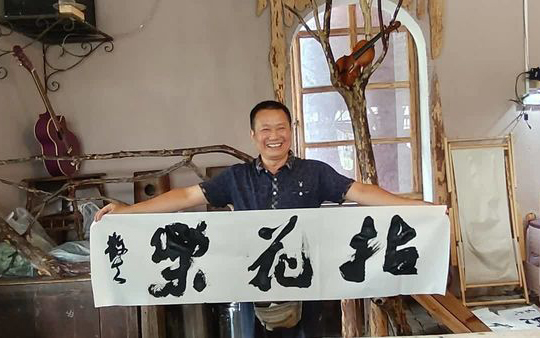 拈花笑